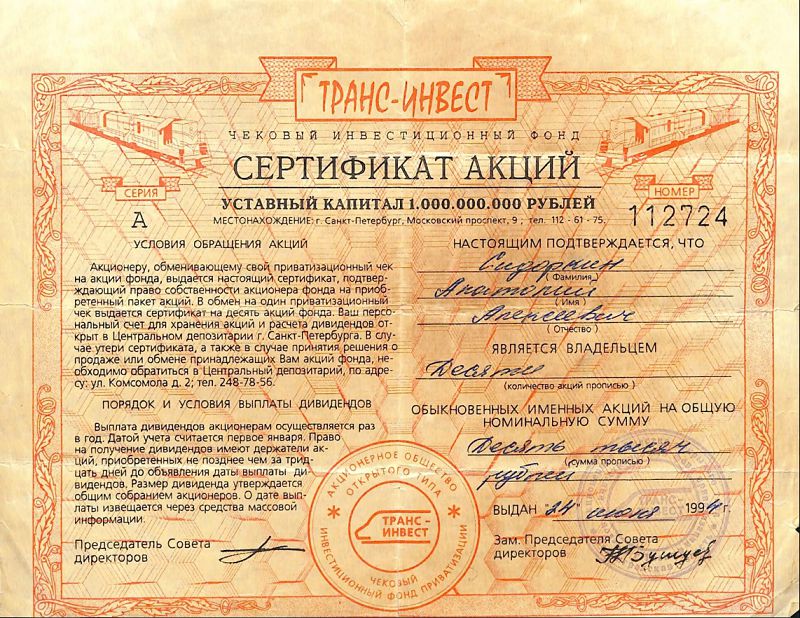 ТРАНС-ИНВЕСТ
ЧЕКОВЫЙ ИНВЕСТИЦИОННЫЙ ФОНД
СЕРТИФИКАТ АКЦИЙ
УСТАВНЫЙ КАПИТАЛ 1.000.000.000 РУБЛЕЙ
МЕСТОНАХОЖДЕНИЕ: г. Санкт-Петербург, Московский проспект, 9 ; тел. 112 - 61 - 75.
СЕРИЯ
А
НОМЕР
112724
УСЛОВИЯ ОБРАЩЕНИЯ АКЦИЙ
Акционеру, обменивающему свой приватизационный чек
на акции фонда, выдается настоящий сертификат, подтвер-
ждающий право собственности акционера фонда на приоб-
ретенный пакет акций. В обмен на один приватизационный
чек выдается сертификат на десять акций фонда. Ваш персо-
нальный счет для хранения акций и расчета дивидендов от-
крыт в Центральном депозитарии г. Санкт-Петербурга. В слу-
чае утери сертификата, а также в случае принятия решения о
продаже или обмене принадлежащих Вам акций фонда, не-
обходимо обратиться в Центральный депозитарий, по адре-
су: ул. Комсомола д. 2; тел. 248-78-56.
ПОРЯДОК И УСЛОВИЯ ВЫПЛАТЫ ДИВИДЕНДОВ
Выплата дивидендов акционерам осуществляется раз
в год. Датой учета считается первое января. Право
на получение дивидендов имеют держатели ак-
ций, приобретенных не позднее чем за трид-
цать дней до объявления даты выплаты ди
видендов. Размер дивиденда утверждается
общим собранием акционеров. О дате вып-
латы извещается через средства массовой
информации.
Председатель Совета
директоров
НАСТОЯЩИМ ПОДТВЕРЖДАЕТСЯ, ЧТО
Сидоркин
( Фамилия )
Анатолий
( Имя )
Алексеевич
( Отчество )
ЯВЛЯЕТСЯ ВЛАДЕЛЬЦЕМ
Десяти
(количество акций прописью )
ОБЫКНОВЕННЫХ ИМЕННЫХ АКЦИЙ НА ОБЩУЮ
НОМИНАЛЬНУЮ СУММУ
Десять тысяч
(сумма прописью )
рублей
ВЫДАН 24 июня 1994 г.
Зам. Председателя Совета
директоров
АКЦИОНЕРНОЕ ОБЩЕСТВО
ОТКРЫТОГО ТИПА
ТРАНС-
ИНВЕСТ
ЧЕКОВЫЙ
ИНВЕСТИЦИОННЫЙ ФОНД ПРИВАТИЗАЦИИ
ТРАНС-
ИНВЕСТ